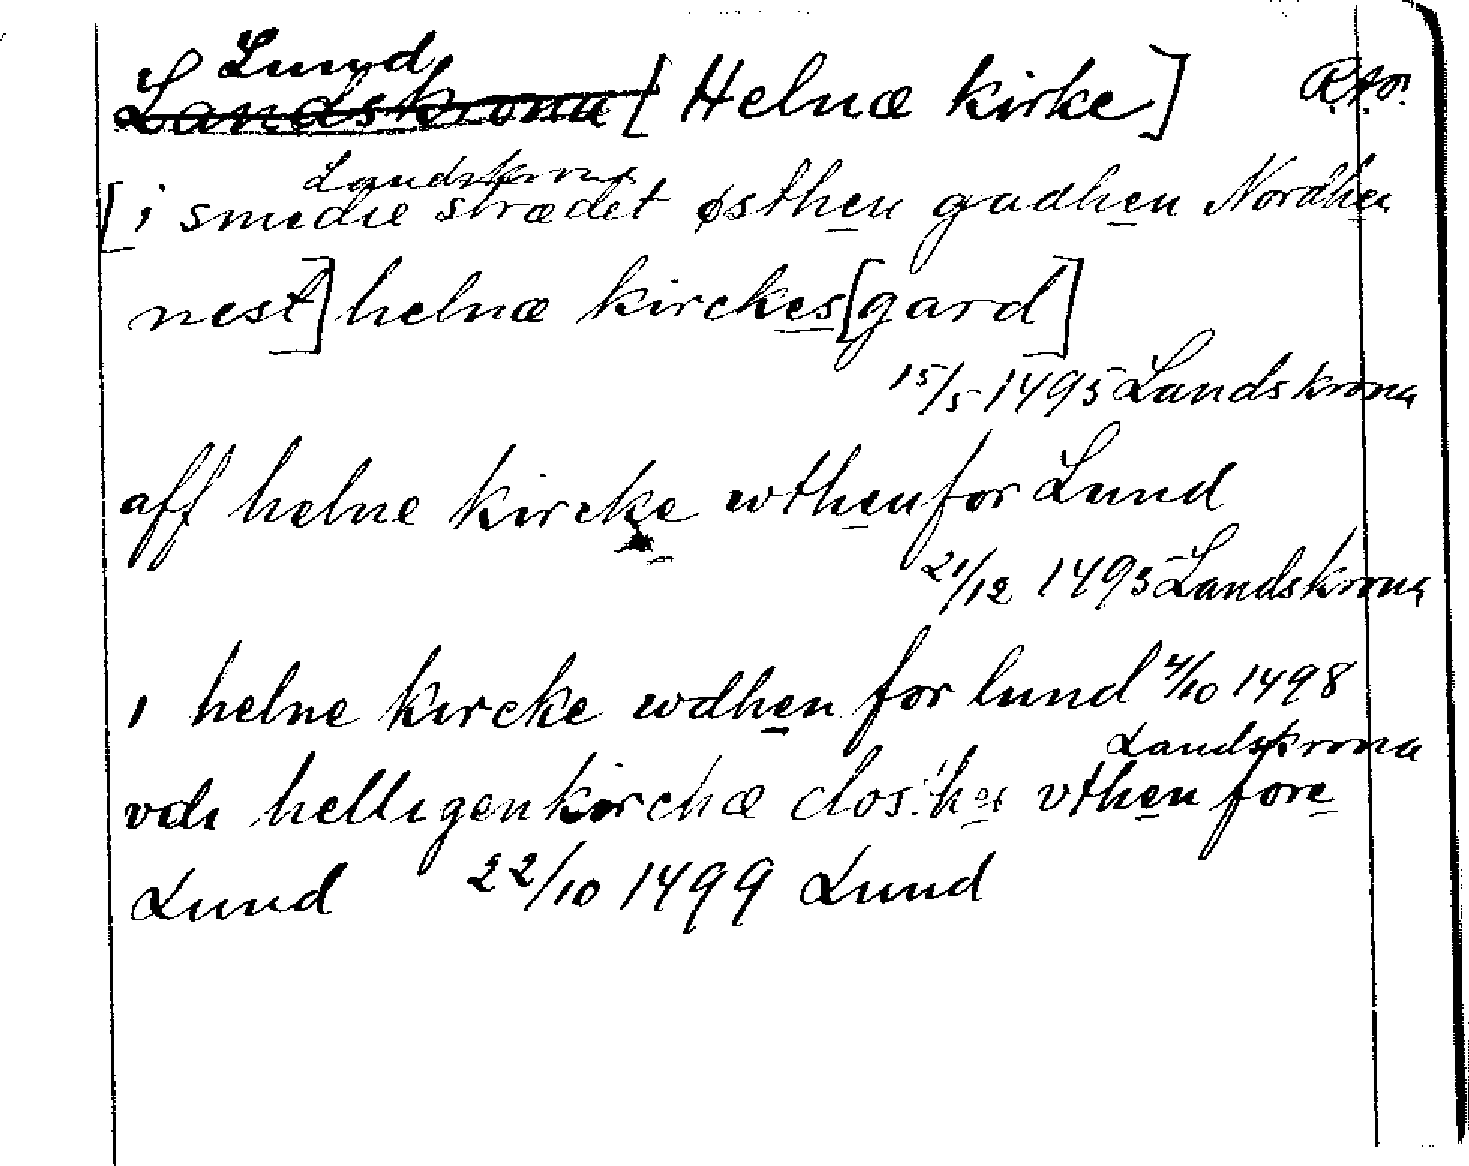 Lund
Landskrona [Helnæ kirke] R.f.
Landskrona
[i smedie strædet østhen gadhen Nordhen
nest] helnæ kirckes [gard]
15/5 1495 Landskrona
aff helne kircke wthenfor Lund
21/12 1495 Landskrona
i helne kircke wdhen for lund 4/10 1498
Landskrona
vdi helligenkirchæ closther vthen fore
Lund 22/10 1499 Lund